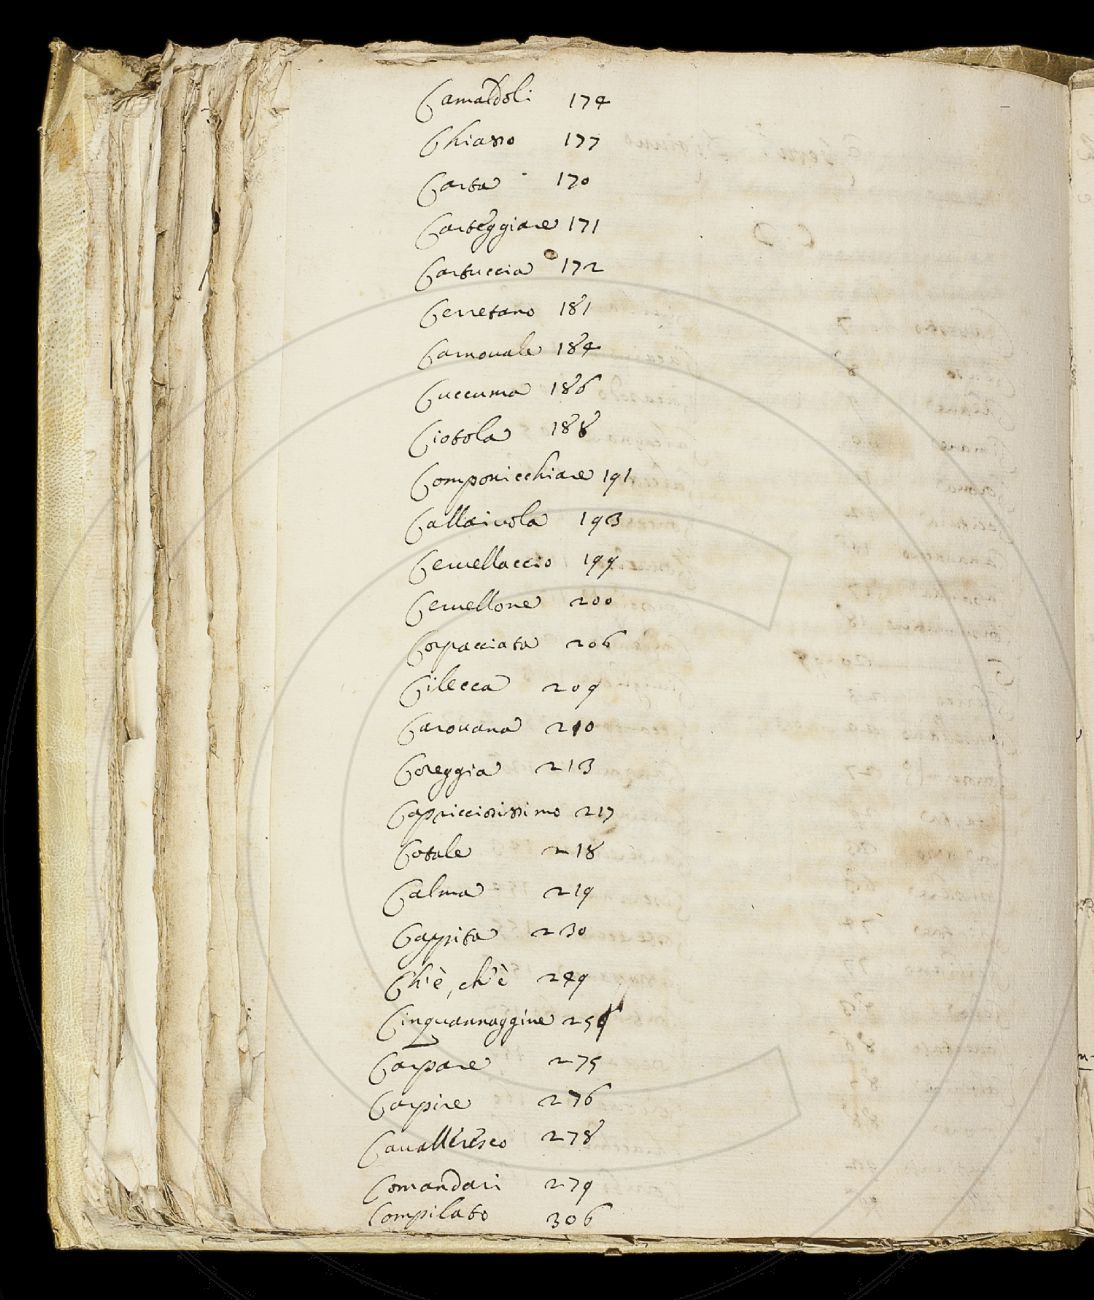 Camaldoli 174
Chiasso 177
Carta 170
Carteggiare 171
Cartuccia 172
Cerretano 181
Carnouale 184
Cuccuma 186
Ciotola 188
Componicchiare 191
Callaiuola 193
Ceruellaccio 199
Ceruellone 200
Corpacciata 206
Cilecca 209
Carouana 210
Coreggia 213
Capricciosissimo 217
Cotale 218
Calma 219
Cappita 230
Ch'è, ch'è 249
Cinquannaggine
Carpare 275
Carpire 276
Caualleresco 278
Comandari 279
Compilato 306